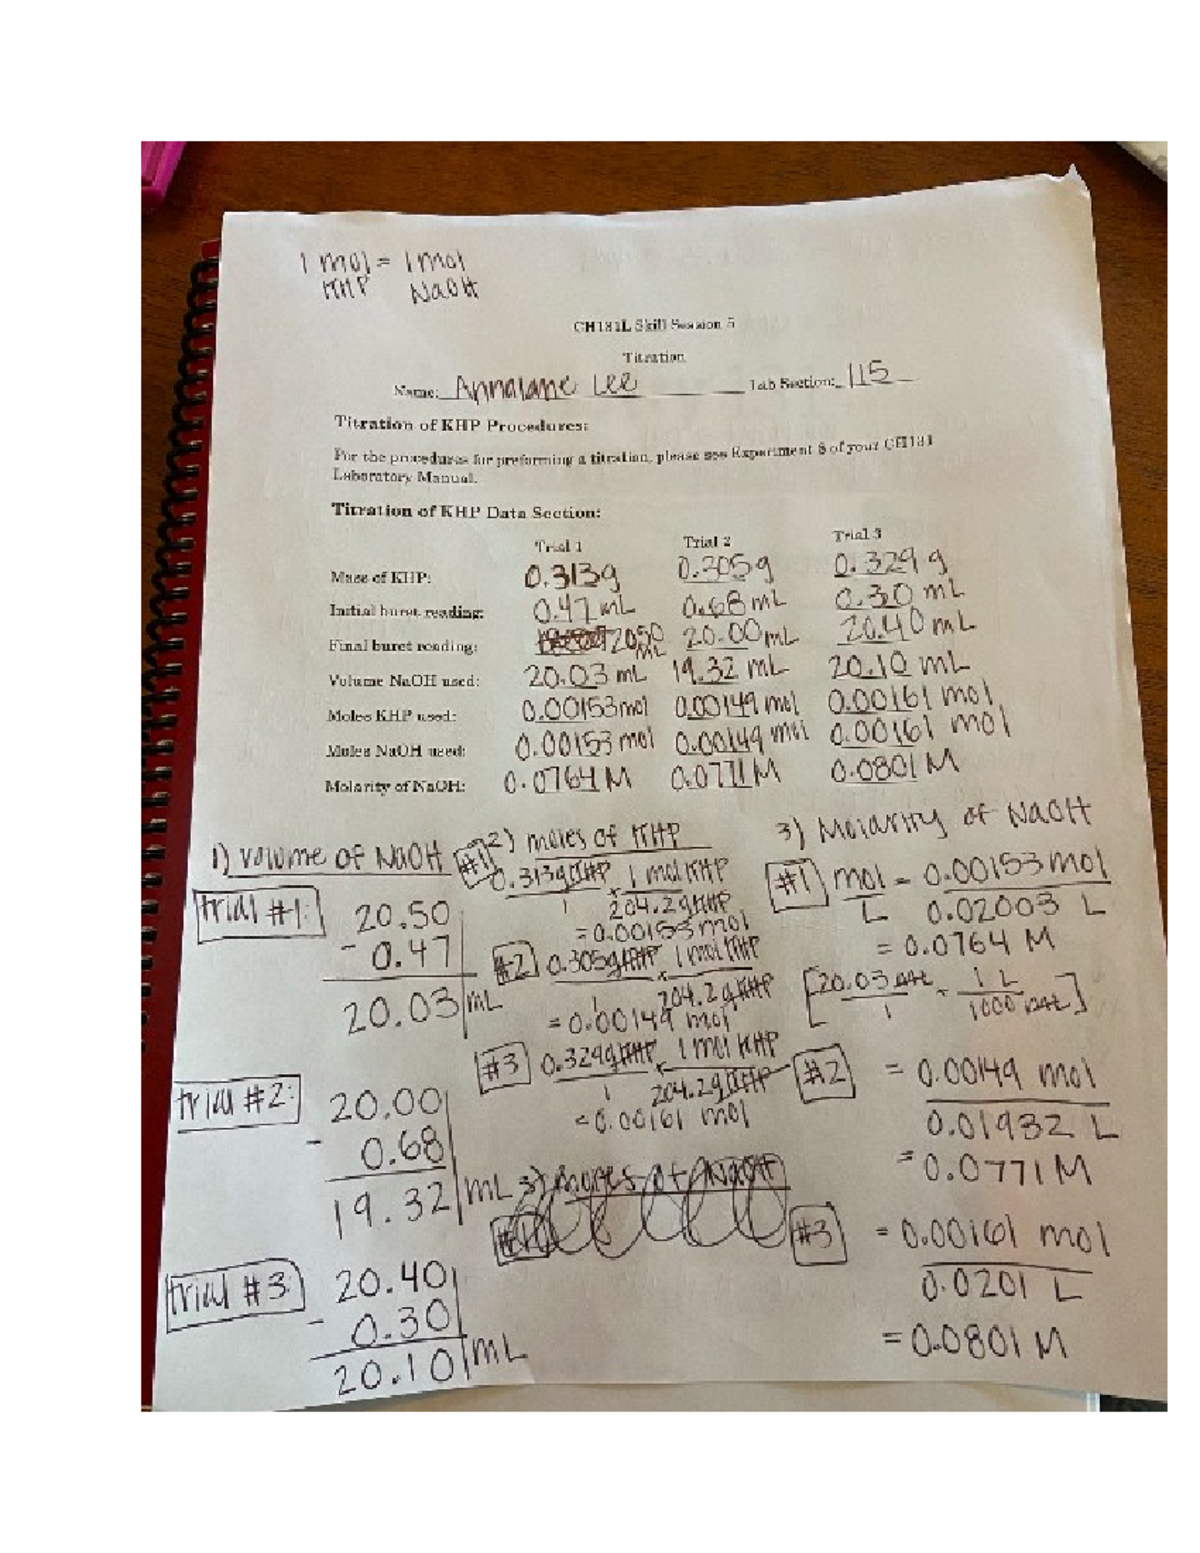 1 mol = 1 mol
KHP NaOH
CH181L Skill Session 5
Titration
Name: Annalane Lee Lab Section: 115
Titration of KHP Procedures:
For the procedures for preforming a titration, please see Experiment 8 of your CH181
Laboratory Manual.
Titration of KHP Data Section:
Trial 1 Trial 2 Trial 3
Mass of KHP: 0.313g 0.305g 0.329 g
Initial buret reading: 0.47 mL 0.68 mL 0.30 mL
Final buret reading: 20.50 mL 20.00 mL 20.40 mL
Volume NaOH used: 20.03 mL 19.32 mL 20.10 mL
Moles KHP used: 0.00153 mol 0.00149 mol 0.00161 mol
Moles NaOH used: 0.00153 mol 0.00149 mol 0.00161 mol
Molarity of NaOH: 0.0764 M 0.0771 M 0.0801 M
1) volume of NaOH
trial #1:
20.50
- 0.47
20.03 mL
trial #2:
20.00
- 0.68
19.32 mL
trial #3:
20.40
- 0.30
20.10 mL
2) moles of KHP
#1
0.313g KHP × 1 mol KHP
1 204.2g KHP
= 0.00153 mol
#2 0.305g KHP × 1 mol KHP
1 204.2 g KHP
= 0.00149 mol
#3 0.329g KHP × 1 mol KHP
1 204.2g KHP
= 0.00161 mol
3) moles of NaOH
#1
3) Molarity of NaOH
#1 mol = 0.00153 mol
L 0.02003 L
= 0.0764 M
[20.03 mL × 1 L
1 1000 mL]
#2 = 0.00149 mol
0.01932 L
= 0.0771 M
#3 = 0.00161 mol
0.0201 L
= 0.0801 M